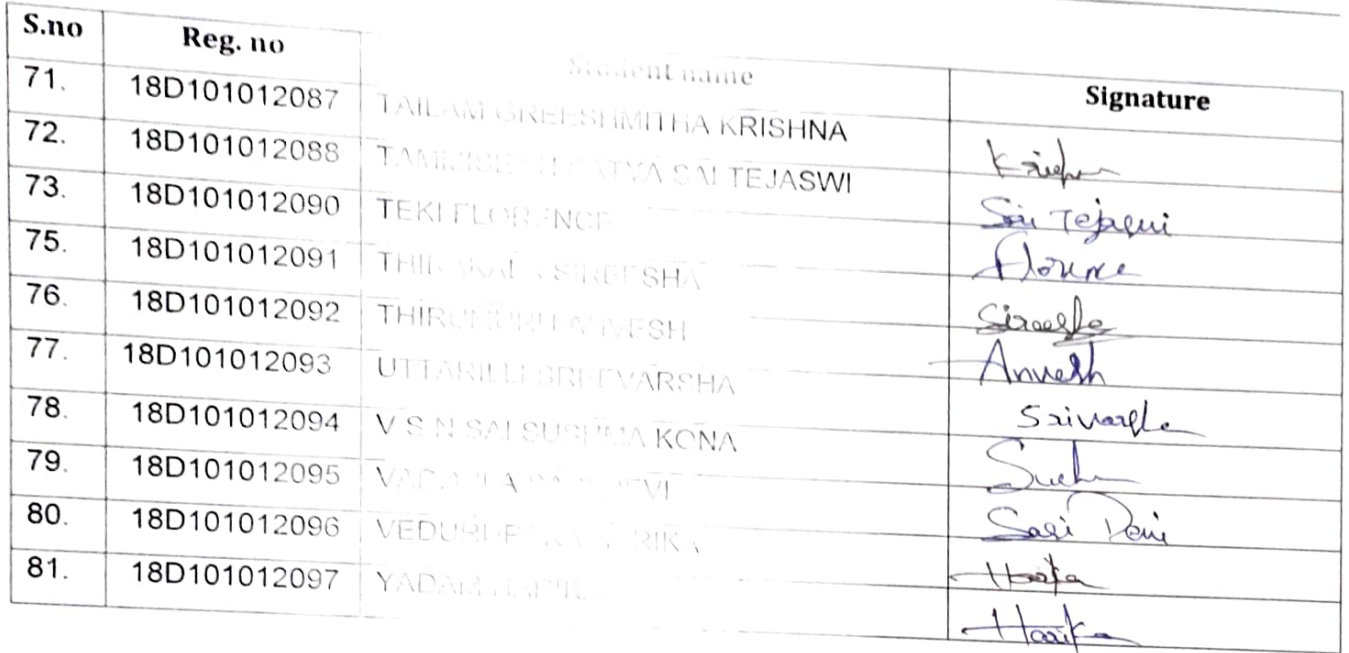 S.no Reg. no Student name Signature
71. 18D101012087 TAILAM GREESHMITHA KRISHNA Krishna
72. 18D101012088 SATYA SAI TEJASWI Sai Tejaswi
73. 18D101012090 TEKI FLORENCE Florence
75. 18D101012091 SIREESHA Sireesha
76. 18D101012092 ANVESH Anvesh
77. 18D101012093 UTTARILLI SREEVARSHA
78. 18D101012094 V S N SAI SUSHMA KONA
79. 18D101012095 Devi
80. 18D101012096
81. 18D101012097 Harika